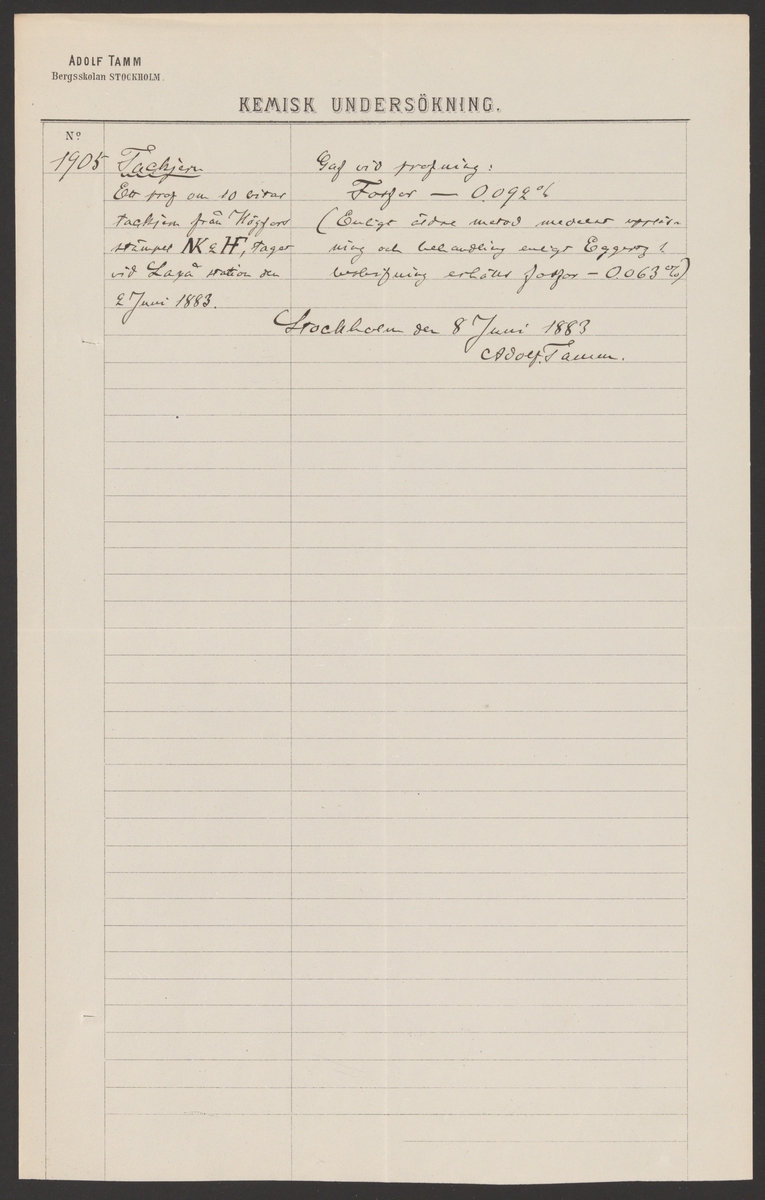 ADOLF TAMM
Bergsskolan STOCKHOLM.
KEMISK UNDERSÖKNING.
Nº
1905 Tackjern
Ett prof om 10 bitar
tackjern från Högfors
stämpel NK & HF, taget
vid Laxå station den
2 Juni 1883.
Gaf vid profning:
Fosfor — 0.092 %
(Enligt äldre metod medelst upplös-
ning och behandling enligt Eggertz's
beskrifning erhölls fosfor — 0.063 %)
Stockholm den 8 Juni 1883
Adolf Tamm.